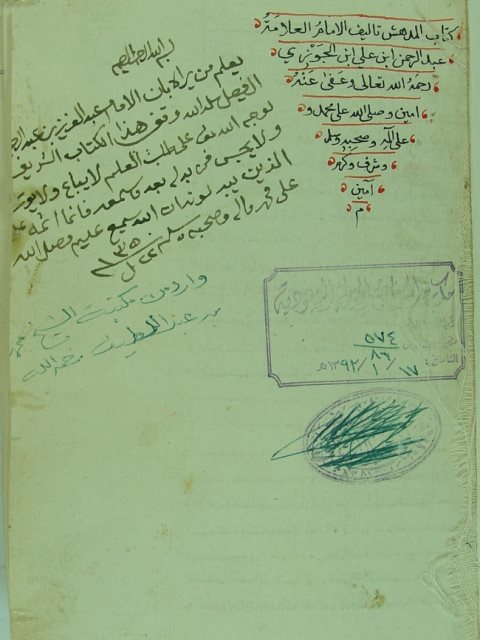 كتاب المدهش تاليف الامام العلامة
عبد الرحمن ابن علي ابن الجوزي
رحمه الله تعالى وعفى عنه
امين وصلى الله على محمد و
على آله وصحبه وسلم
وشرف وكرم
آمين
م
بسم الله الرحمن الرحيم
يعلم من يراه بان الامام عبد العزيز بن عبد الرحمن
الفيصل سلمه الله وقف هذا الكتاب الشريف
لوجه الله تعالى على طلبة العلم لا يباع ولا يوهب
ولا يحبس فمن بدله بعد ما سمعه فانما اثمه على
الذين يبدلونه ان الله سميع عليم وصلى الله
على محمد واله وصحبه وسلم
وارد من مكتبة الشيخ محمد
بن عبد اللطيف رحمه الله
المكتبة السعودية
٥٧٤
٨٦
التاريخ ١٧ / ١ / ١٣٩٢هـ